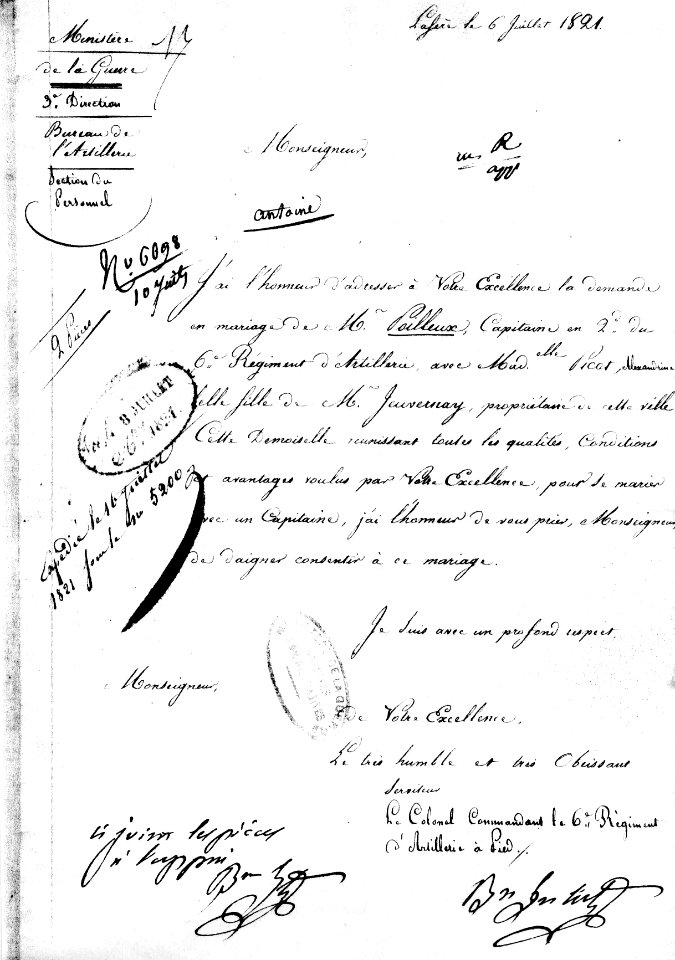 Lafère le 6 Juillet 1821.
Ministère
de la Guerre
3e. Direction
Bureau de
l'Artillerie
Section du
Personnel
Monseigneur,
R
app
antoine
No 6098
10 Juillet
2 Pièces
J'ai l'honneur d'adresser à Votre Excellence la demande
en mariage de M.r Pailleux, Capitaine en 2d. du
6e. Régiment d'Artillerie, avec Mad.elle Picot, Alexandrine
belle fille de M.r Jouvernay, propriétaire de cette ville
Cette Demoiselle réunissant toutes les qualités, Conditions
et avantages voulus par Votre Excellence, pour se marier
avec un Capitaine, j'ai l'honneur de vous prier, Monseigneur,
de daigner consentir à ce mariage.
8 JUILLET
1821.
Expédié le 16 Juillet
1821 sous le no 5200
Je suis avec un profond respect.
Monseigneur,
de Votre Excellence,
Le très humble et très Obéissant
Serviteur
Le Colonel Commandant le 6e. Régiment
d'Artillerie à Pied./.
ci joint les pièces
à l'appui
Bon
Bon